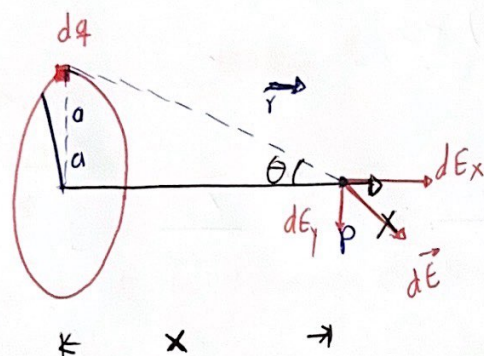 dq
a
r
a
θ
dEx
dEy
P
X
dE
x